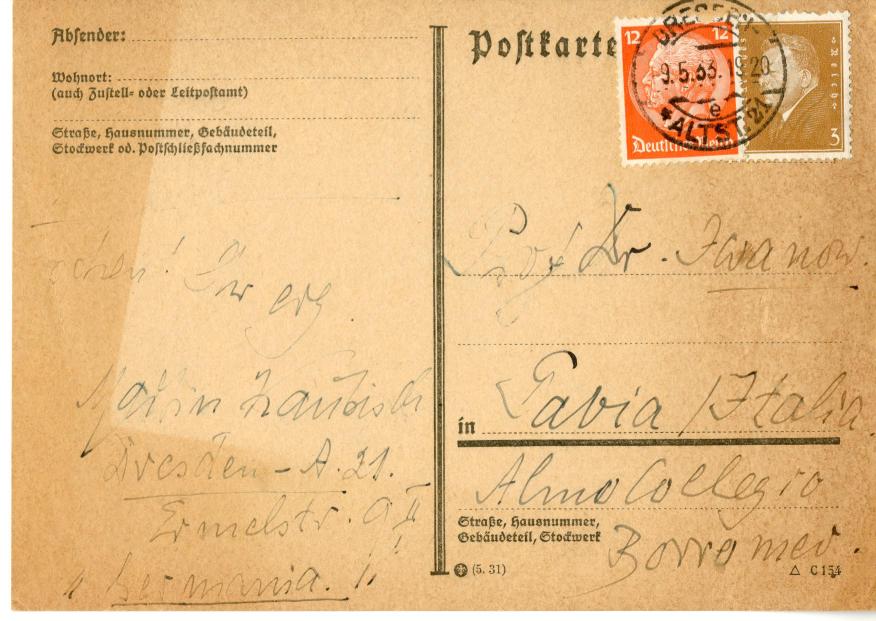 Absender:
Wohnort:
(auch Zustell- oder Leitpostamt)
Straße, Hausnummer, Gebäudeteil,
Stockwerk od. Postschließfachnummer
Postkarte
12 12
Deutsches Reich
3
DRESDEN-
9.5.33. 19-20
e
*ALTST. 24
Prof Dr. Iwanow.
in Pavia / Italia
Almo Collegio
Straße, Hausnummer,
Gebäudeteil, Stockwerk
Borromeo.
(5. 31)
△ C 154
Ihr erg
Martin
Dresden-A. 21.
Ermelstr. 9 II
Germania.